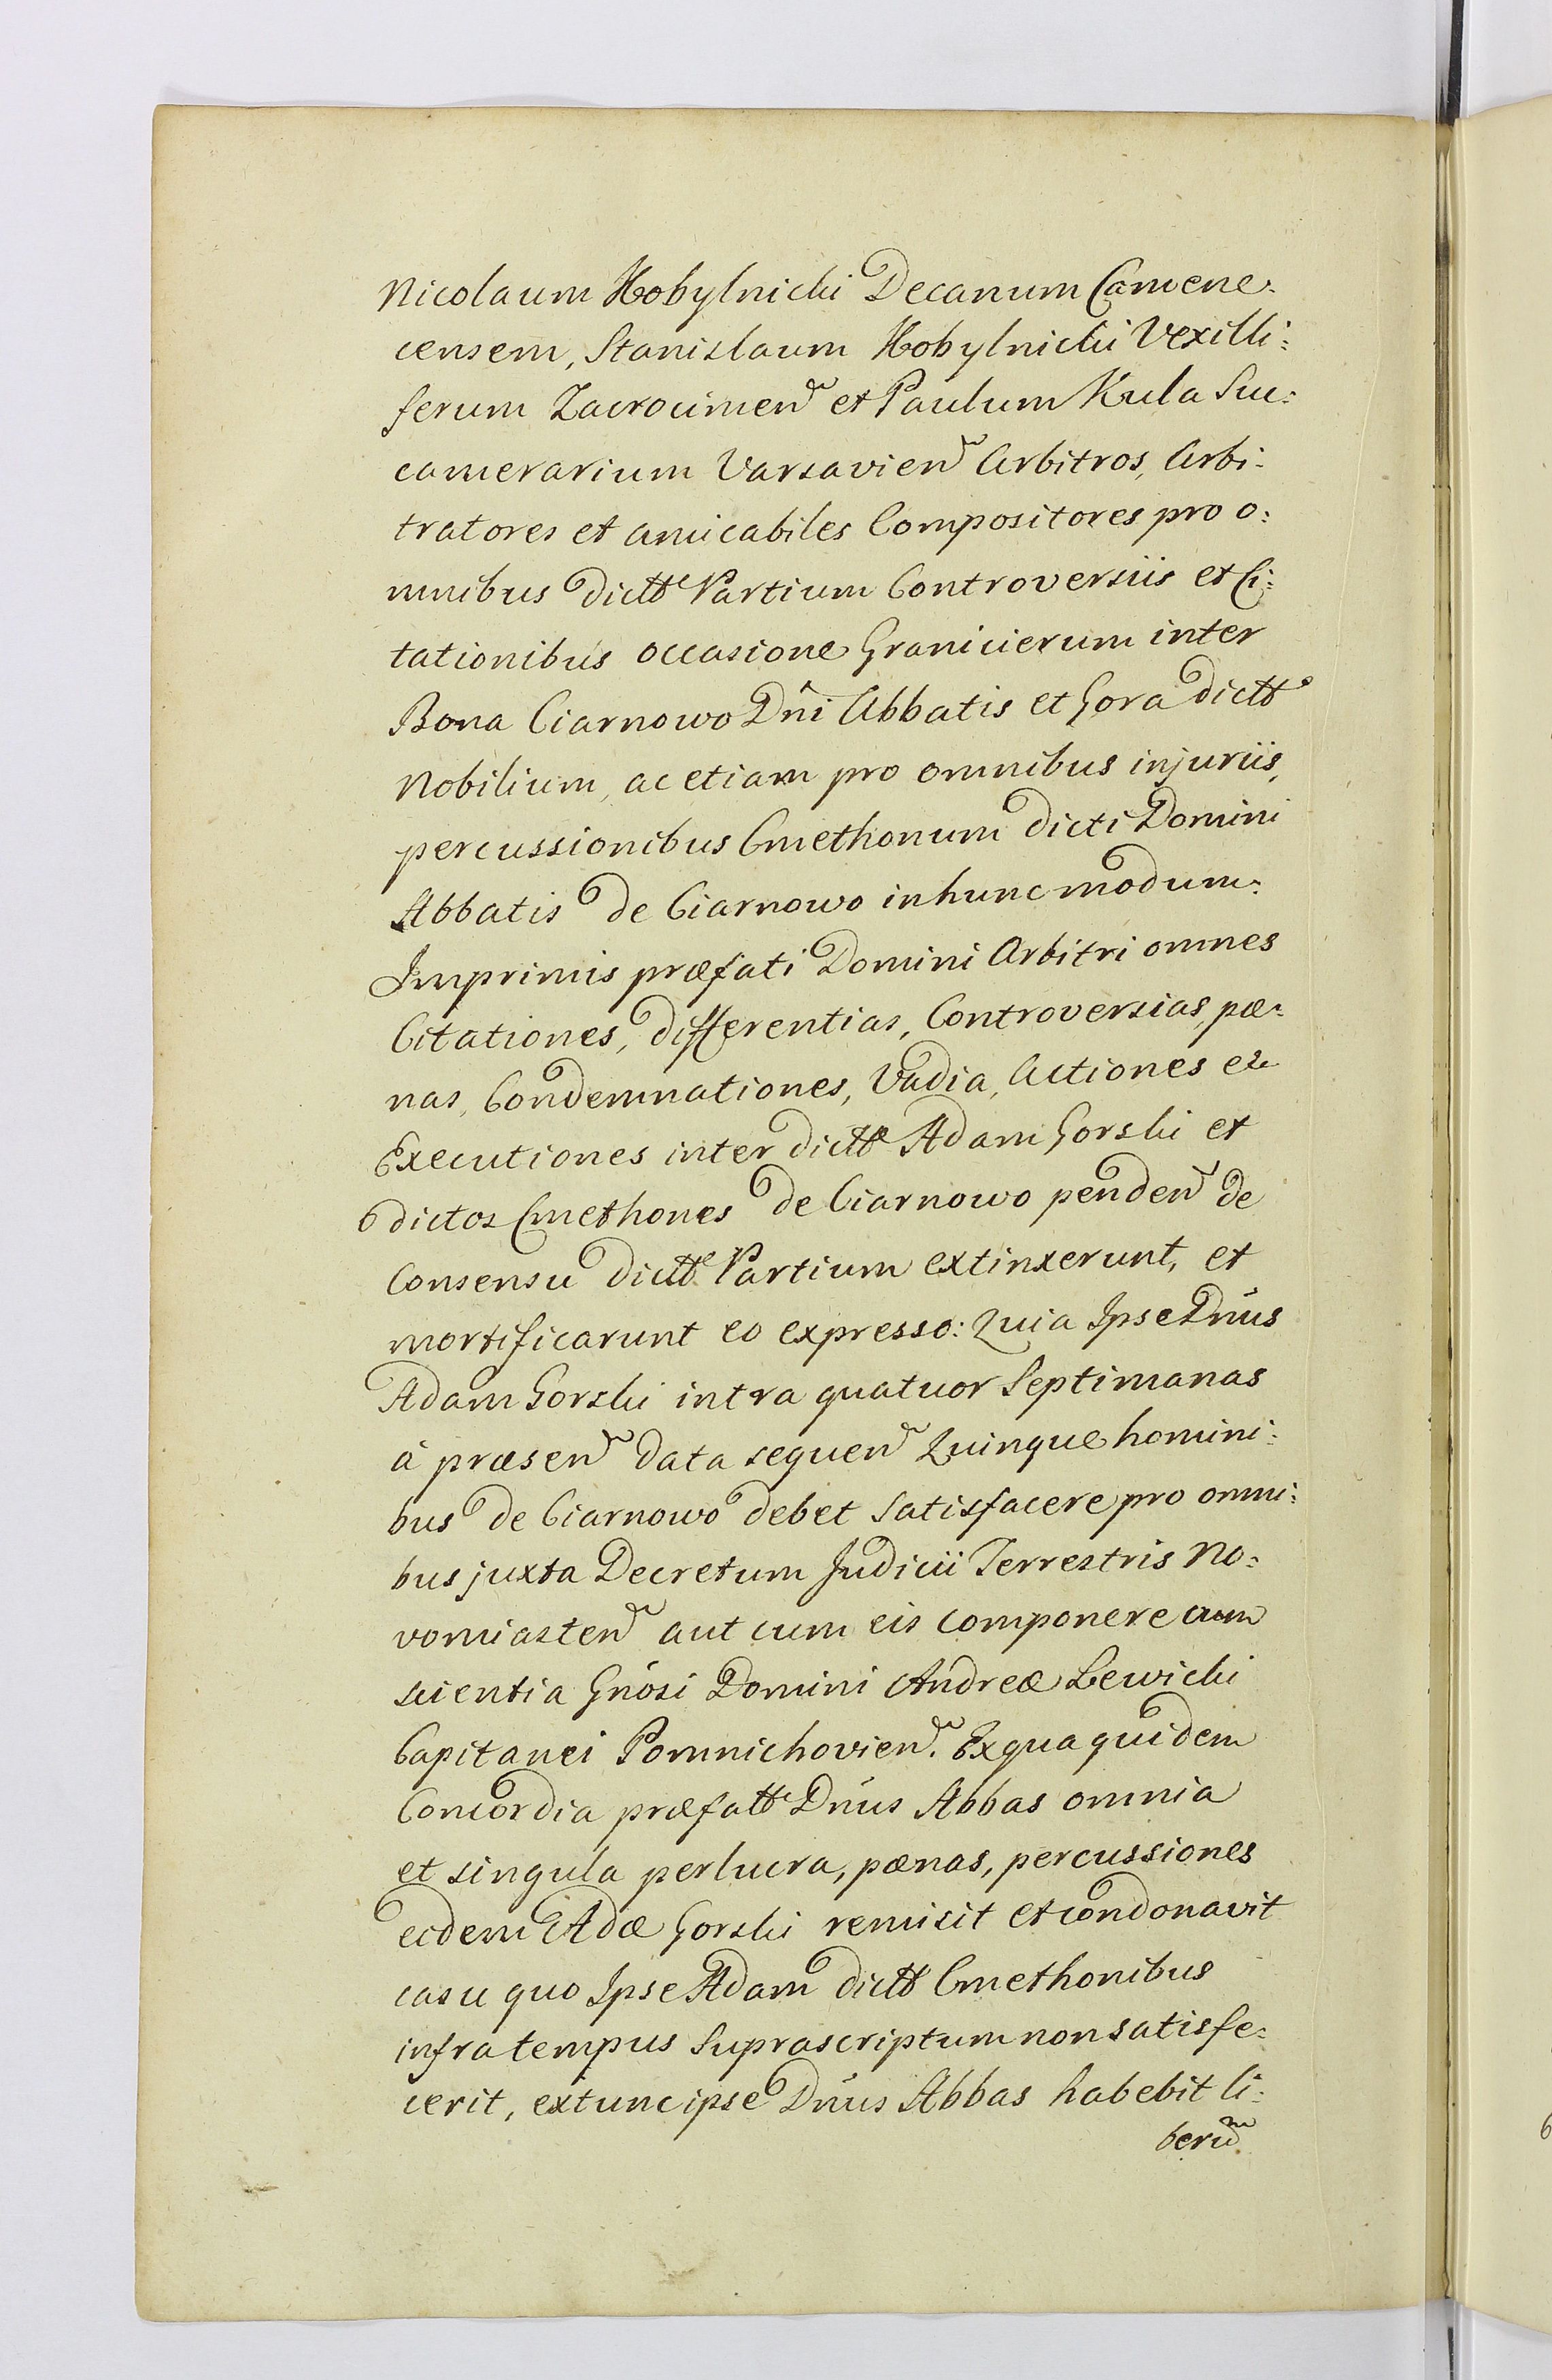 Nicolaum Kobylnicki Decanum Camene:
censem, Stanislaum Kobylnicki Vexilli:
ferum Zacrocimen̄ et Paulum Kula Suc:
camerarium Varsavien̄ Arbitros, Arbi:
tratores et amicabiles Compositores pro o:
mnibus dictt Partium Controversiis et Ci:
tationibus occasione Granicierum inter
Bona Czarnowo Dn̄i Abbatis et Gora dictt
Nobilium, ac etiam pro omnibus injuriis,
percussionibus Cmethonum dicti Domini
Abbatis de Czarnowo in hunc modum:
Imprimis præfati Domini Arbitri omnes
Citationes, differentias, Controversias, pæ:
nas, Condemnationes, Vadia, Actiones et
Executiones inter dictt Adam Gorski et
dictos Cmethones de Czarnowo penden̄ de
Consensu dictt Partium extinxerunt, et
mortificarunt eo expresso: Quia Ipse Dn̄us
Adam Gorski intra quatuor Septimanas
à præsen̄ data sequen̄ Quinque homini:
bus de Czarnowo debet Satisfacere pro omni:
bus juxta Decretum Judicii Terrestris No:
vomiasten̄ aut cum eis componere cum
scientia Gn̄osi Domini Andreæ Lewicki
Capitanei Pomnichovien̄. Ex qua quidem
Concordia præfatt Dn̄us Abbas omnia
et singula perlucra, pænas, percussiones
eidem Adæ Gorski remisit et condonavit
casu quo Ipse Adam dictt Cmethonibus
infra tempus Suprascriptum non satisfe:
cerit, extunc ipse Dn̄us Abbas habebit li:
berū